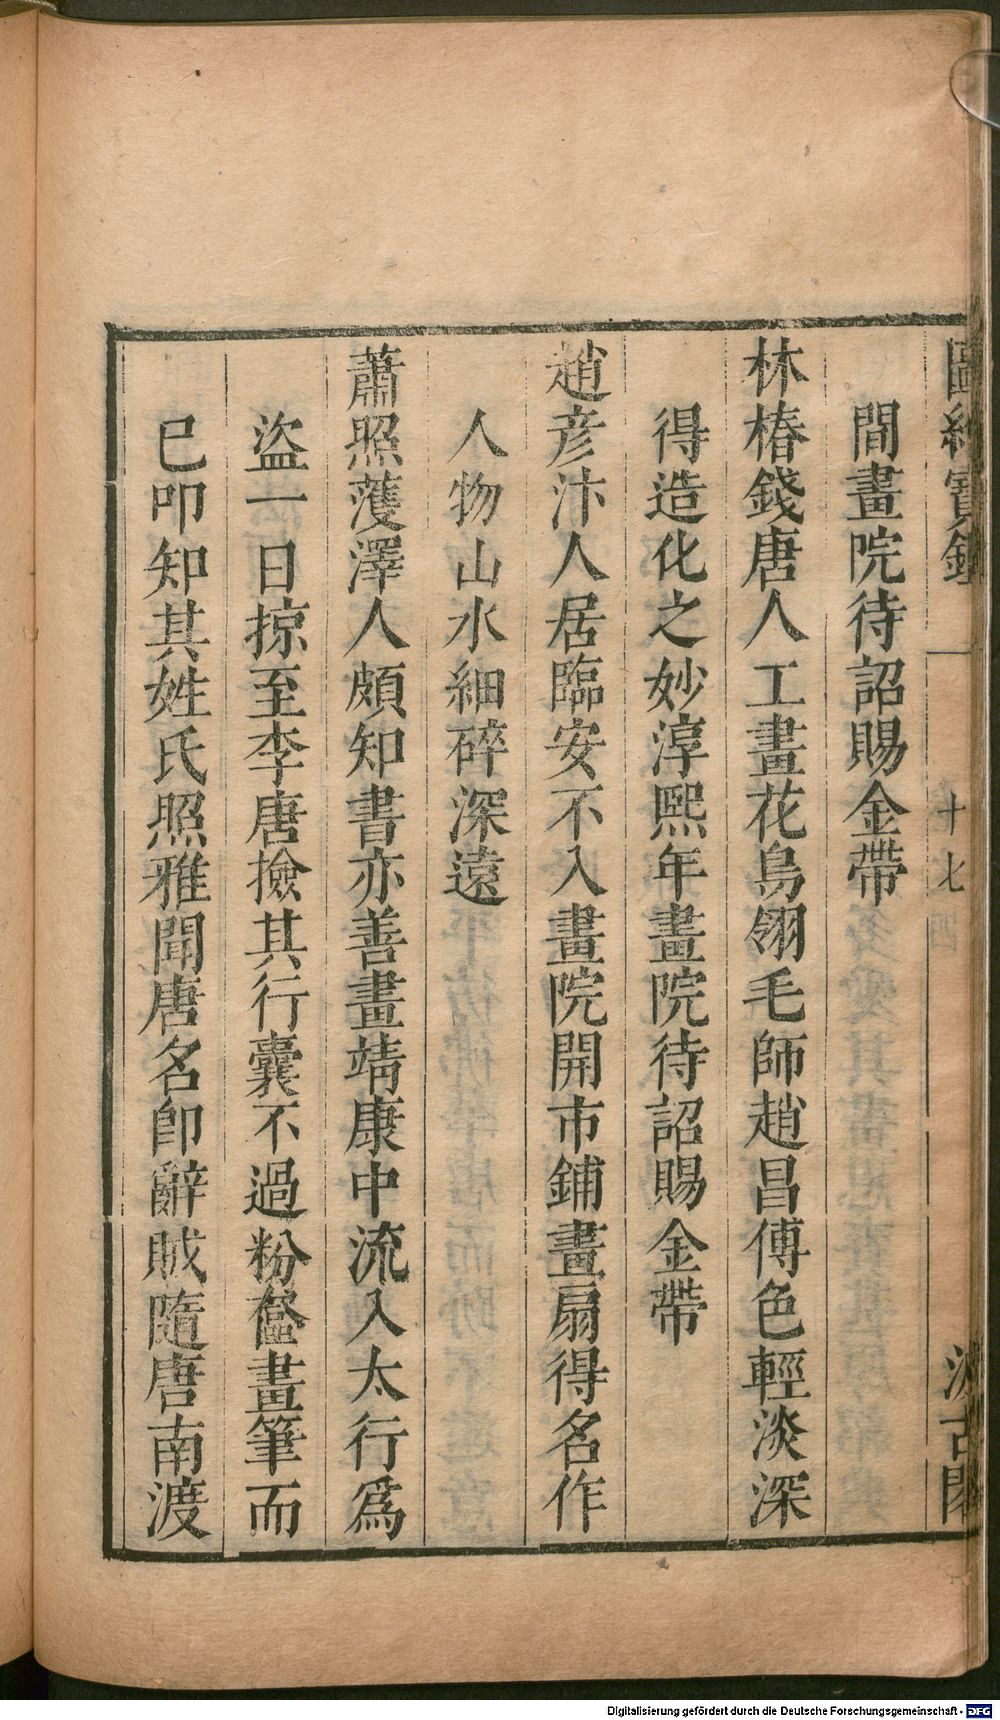 圖繪寶鑑 十七 汲古閣
間畫院待詔賜金帶
林椿錢唐人工畫花鳥翎毛師趙昌傅色輕淡深
得造化之妙淳熙年畫院待詔賜金帶
趙彦汴人居臨安不入畫院開市鋪畫扇得名作
人物山水細碎深遠
蕭照蒦澤人頗知書亦善畫靖康中流入太行爲
盜一日掠至李唐撿其行囊不過粉奩畫筆而
巳叩知其姓氏照雅聞唐名卽辭賊隨唐南渡
Digitalisierung gefördert durch die Deutsche Forschungsgemeinschaft - DFG